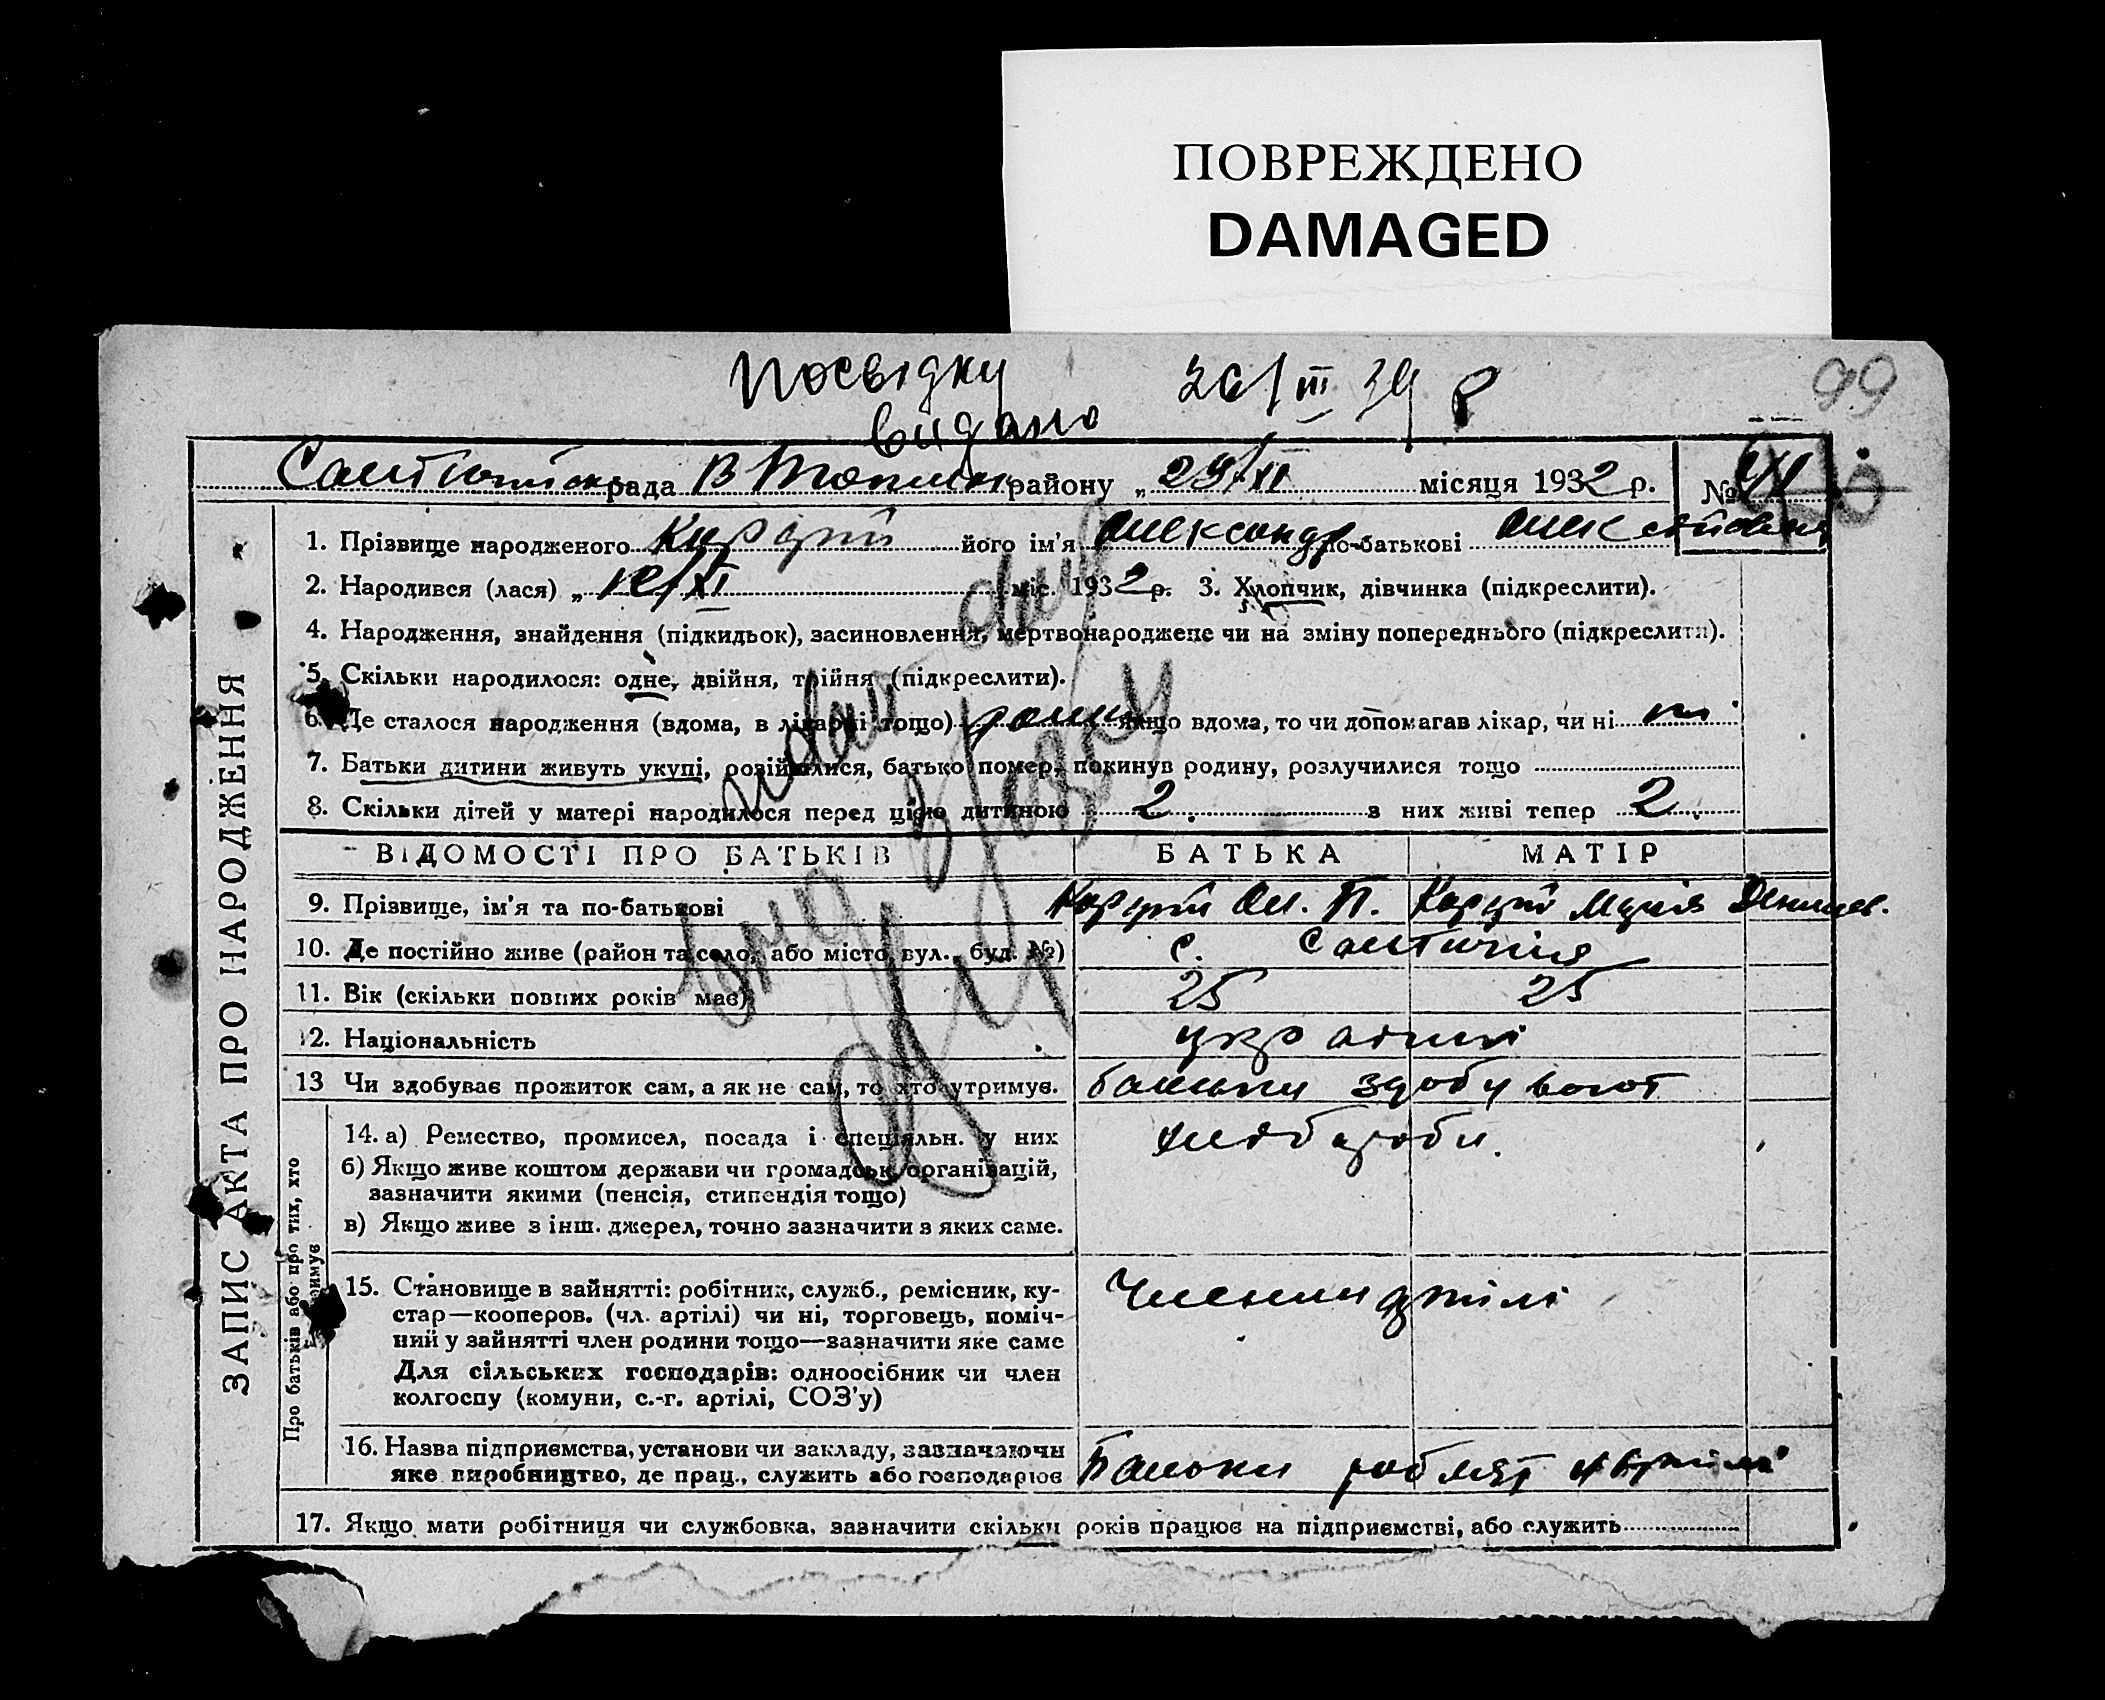 ПОВРЕЖДЕНО
DAMAGED
Посвідку 26/III 39 р
видано
99
рада району „29/XI місяця 1932 р. №
1. Прізвище народженого його ім'я Олександр по-батькові
2. Народився (лася) „ міс. 1932 р. 3. Хлопчик, дівчинка (підкреслити).
4. Народження, знайдення (підкидьок), засиновлення, мертвонароджене чи на зміну попереднього (підкреслити).
5. Скільки народилося: одне, двійня, трійня (підкреслити).
6. Де сталося народження (вдома, в лікарні тощо) якщо вдома, то чи допомагав лікар, чи ні ні
7. Батьки дитини живуть укупі, розійшлися, батько помер, покинув родину, розлучилися тощо
8. Скільки дітей у матері народилося перед цією дитиною 2 з них живі тепер 2
ВІДОМОСТІ ПРО БАТЬКІВ БАТЬКА МАТІР
9. Прізвище, ім'я та по-батькові
10. Де постійно живе (район та село, або місто, вул., буд. №) с.
11. Вік (скільки повних років має) 25 25
12. Національність українці
13 Чи здобуває прожиток сам, а як не сам, то хто утримує. батьки здобувают
14. а) Ремество, промисел, посада і спеціяльн. у них хлібороби
б) Якщо живе коштом держави чи громадськ. організацій,
зазначити якими (пенсія, стипендія тощо)
в) Якщо живе з інш. джерел, точно зазначити з яких саме.
15. Становище в зайнятті: робітник, служб., ремісник, ку-
стар—кооперов. (чл. артілі) чи ні, торговець, поміч-
ний у зайнятті член родини тощо—зазначити яке саме
Для сільських господарів: одноосібник чи член
колгоспу (комуни, с.-г. артілі, СОЗ'у)
Члени артілі
16. Назва підприємства, установи чи закладу, зазначаючи
яке виробництво, де прац., служить або господарює
Батьки роблят в артілі
17. Якщо мати робітниця чи службовка, зазначити скільки років працює на підприємстві, або служить
ЗАПИС АКТА ПРО НАРОДЖЕННЯ
Про батьків або про тих, хто
утримує